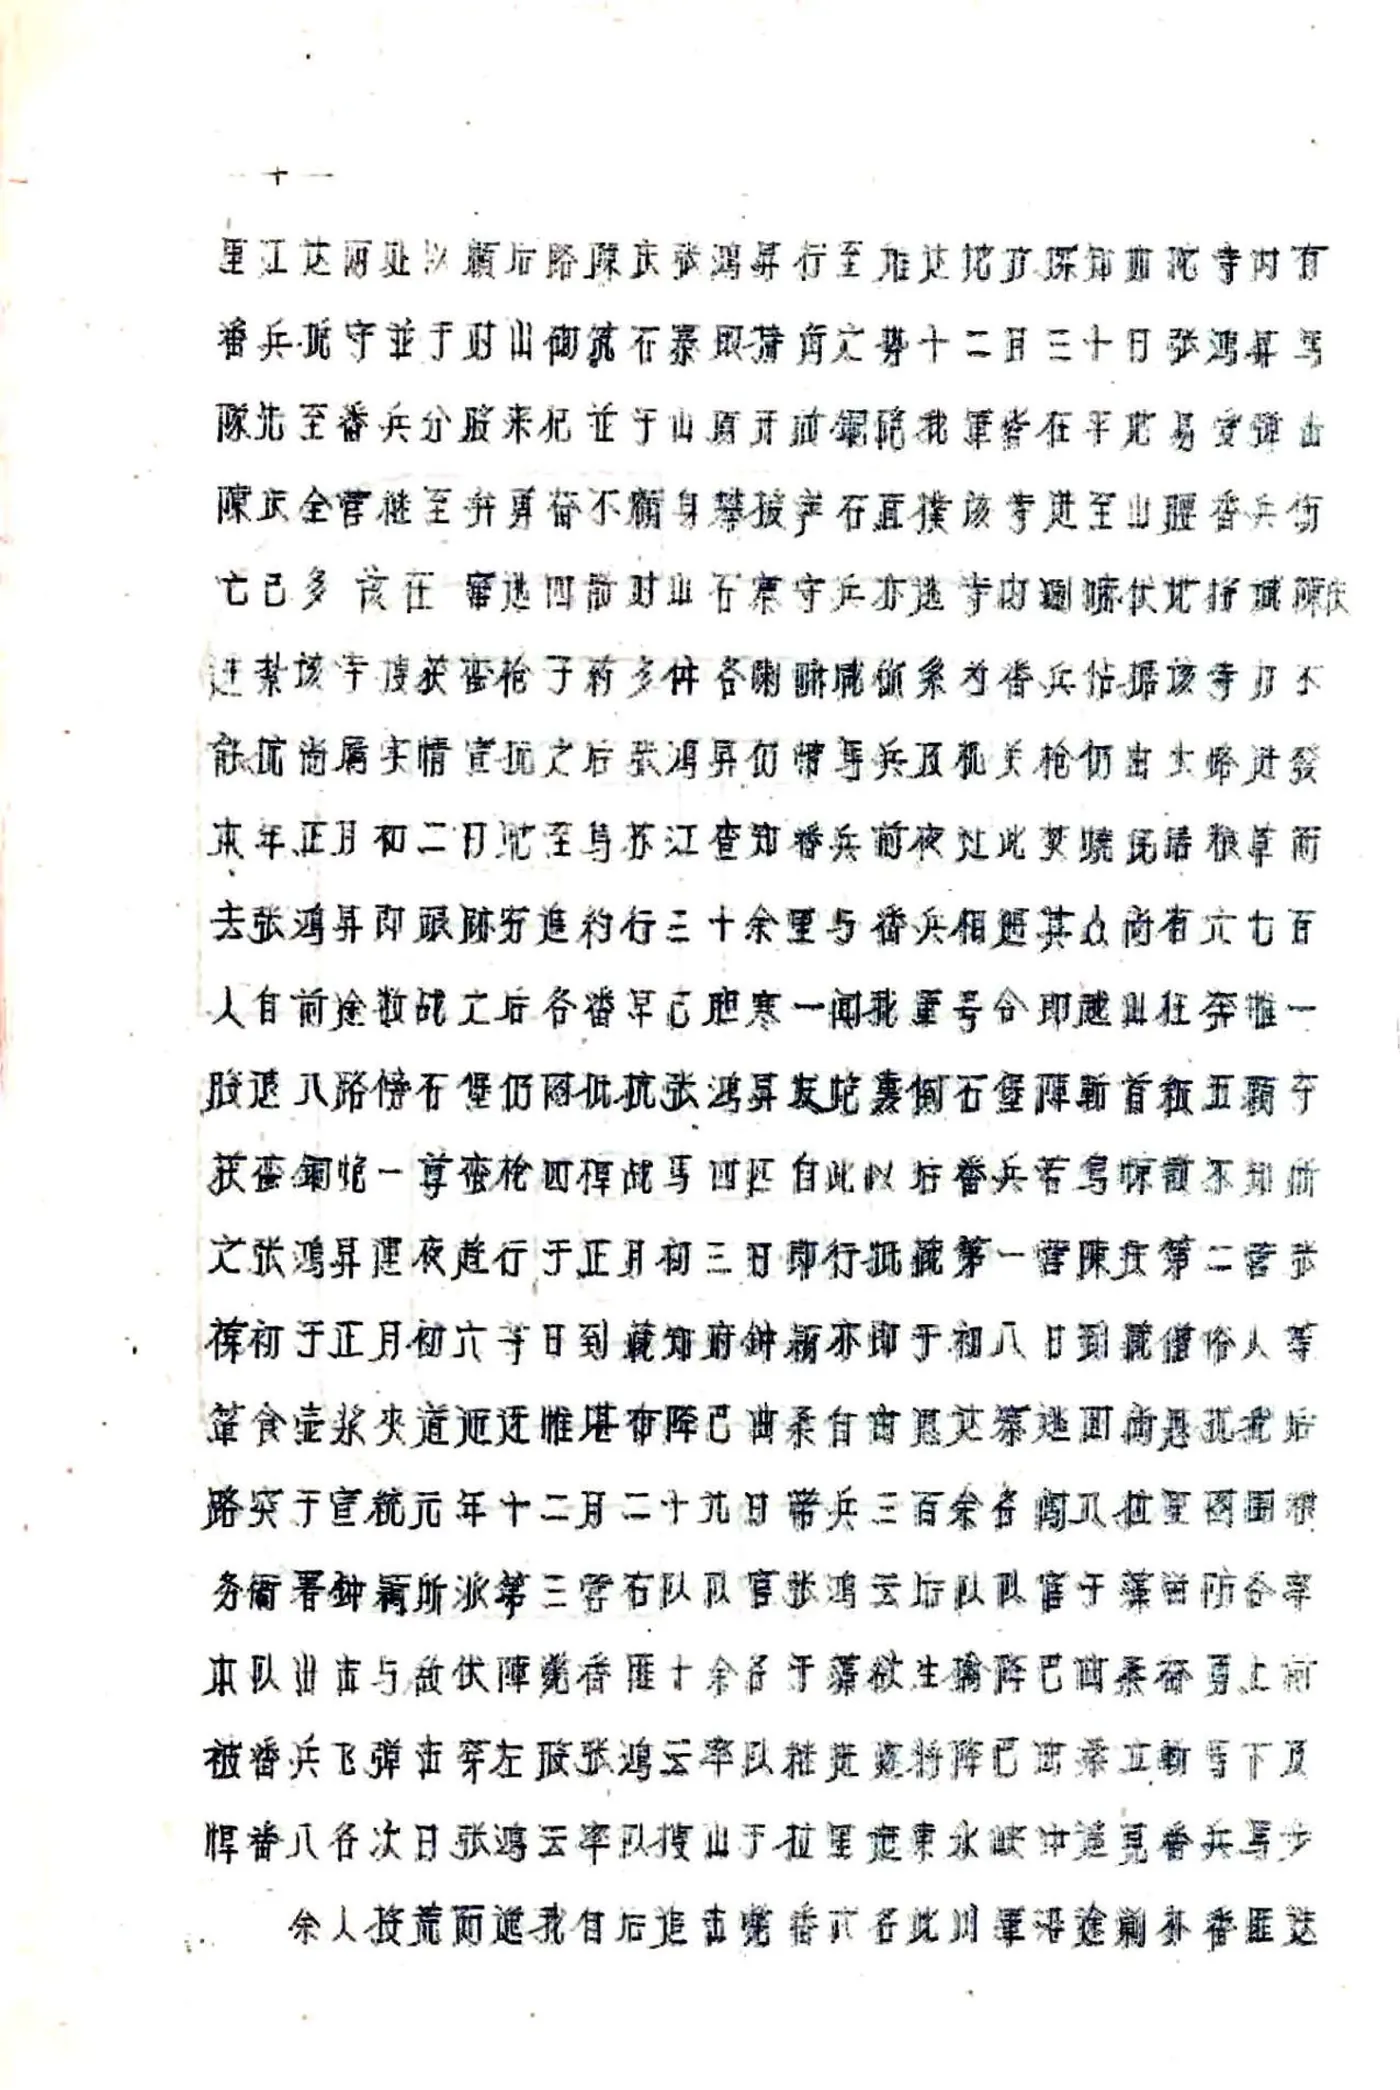 一十一
里江达两处以顾后路陳庆张鸿昇行至堆达地方探知该寺内有
番兵扼守並于对山御筑石寨取犄角之势十二月三十日张鸿昇马
隊先至番兵分股来犯並于山原开放鋼炮我軍皆在平地易受弹击
陳庆全营继至弁勇奋不顾身攀披岩石直撲该寺进至山腰番兵伤
亡已多 该在 寨逃四散对山石寨守兵亦逃寺内喇嘛伏地投诚陳庆
进紮该寺搜获蛮枪子药多件各喇嘛 系为番兵佔据该寺力不
能抗尚属实情宣抚之后张鸿昇仍带馬兵及机关枪仍由大路进發
本年正月初二日驰至乌苏江查知番兵前夜过此焚烧 粮草而
去张鸿昇即跟跡穷追约行三十余里与番兵相遇其众尚有六七百
人自前途数战之后各番早已胆寒一闻我軍号令即越山狂奔惟一
股退入路傍石堡仍图抵抗张鸿昇发炮裏倒石堡陣斬首級五顆夺
获蛮銅炮一尊蛮枪四桿战马四匹自此以后番兵若鸟惊散不知所
之张鸿昇连夜趱行于正月初三日即行抵藏第一营陳庆第二营张
葆初于正月初六等日到藏知府钟颖亦即于初八日到藏僧俗人等
箪食壶浆夹道迎迓惟堪布阵巴曲桑自甫恩达寨逃回尚思扰我后
路突于宣統元年十二月二十九日带兵三百余名闯入拉里图围粮
务衙署钟颖所派第三营右队队官张鸿云后队队官于藩留防各率
本队出击与敌伏陣斃番匪十余名于藩欲生擒阵巴曲桑奋勇上前
被番兵飞弹击穿左股张鸿云率队继进竟将阵巴曲桑立斬馬下及
悍番八名次日张鸿云率队搜山于拉里迤東永峡中遥見番兵馬步
余人投荒而遁我自后追击斃番六名此川軍沿途剿扑番匪达